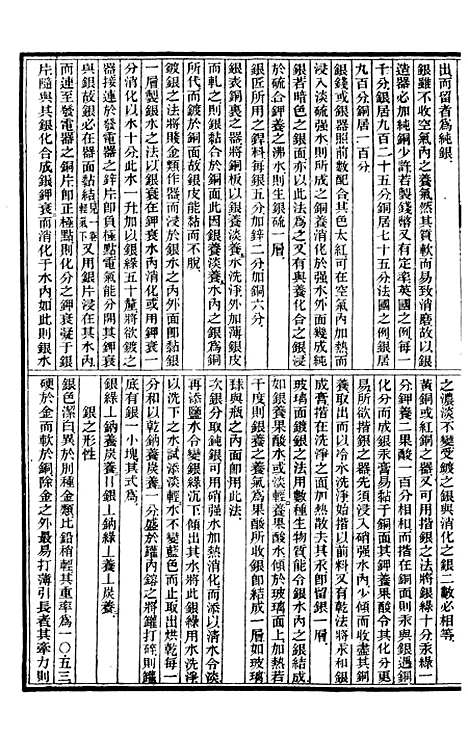 出而留者爲純銀
銀雖不收空氣內之養氣然其質軟而易致消磨故以銀
造器必加純銅少許若製錢幣又有定率英國之例每一
千分銀居九百二十五分銅居七十五分法國之例銀居
九百分銅居一百分
銀錢或銀器照前數配合其色太紅可在空氣內加熱而
浸入淡硫强水則所成之銅養消化於强水外面變成純
銀若暗色之銀面亦以此法爲之又有與養化合之銀浸
於硫合鉀養之沸水則生銀硫一層
銀匠所用之銲料每銀五分加鋅二分加銅六分
銀表銅裏之器將銅板以銀養淡養水洗淨外加薄銀皮
而軋之則銀黏合於銅面此因銀養淡養水內之銀爲銅
所代而鍍於銅面故銀皮能黏而不脫
鍍銀之法將賤金類作器而浸於銀水之內外面卽黏銀
一層製銀水之法以銀衰在鉀衰水內消化或用鉀衰一
分消化以水十分此水一升加以銀綠五十釐將欲鍍之
器接連於發電器之鋅片卽負極點電氣能分開其鉀衰
與銀故銀必在器面黏結又用銀片浸在其水內
而連至發電器之銅片卽正極點則化分之鉀衰凝于銀
片隨與其銀化合成銀鉀衰而消化于水內如此則銀水
之濃淡不變受鍍之銀與消化之銀二數必相等
黃銅或紅銅之器又可用揩銀之法將銀綠十分汞綠一
分鉀養二果酸一百分相和揩在銅面則汞與銀遇銅
化分而成銀汞膏易黏于銅面其鉀養果酸令其化分更
易所欲揩銀之器先須浸入硝强水內少傾而收盡其銅
養取出而以冷水洗淨始揩以前料又有乾法將銀與汞
成膏揩在洗淨之面加熱散去其汞卽留銀一層
玻璃面鍍銀之法用數種生物質能令銀水內之銀結成
如銀養果酸水或淡輕養果酸水傾於玻璃面上加熱若
干度則銀養之養氣爲果酸所收銀則結成一層如玻璃
球與瓶之內面卽用此法
次銀分取純銀可用硝强水加熱消化而添以淸水令淡
再添鹽水合變銀綠沉下傾出其水將此銀綠用水洗淨
以洗下之水試添淡輕水不變藍色而止取出烘乾每一
分和以乾鈉養炭養一分盛於罐內鎔之將罐打碎則罐
底有銀一小塊其式爲
銀綠⊥鈉養炭養〓銀⊥鈉綠⊥養⊥炭養
銀之形性
銀色潔白異於別種金類比鉛稍輕其重率爲一〇五三
硬於金而軟於銅除金之外最易打薄引長者其牽力則